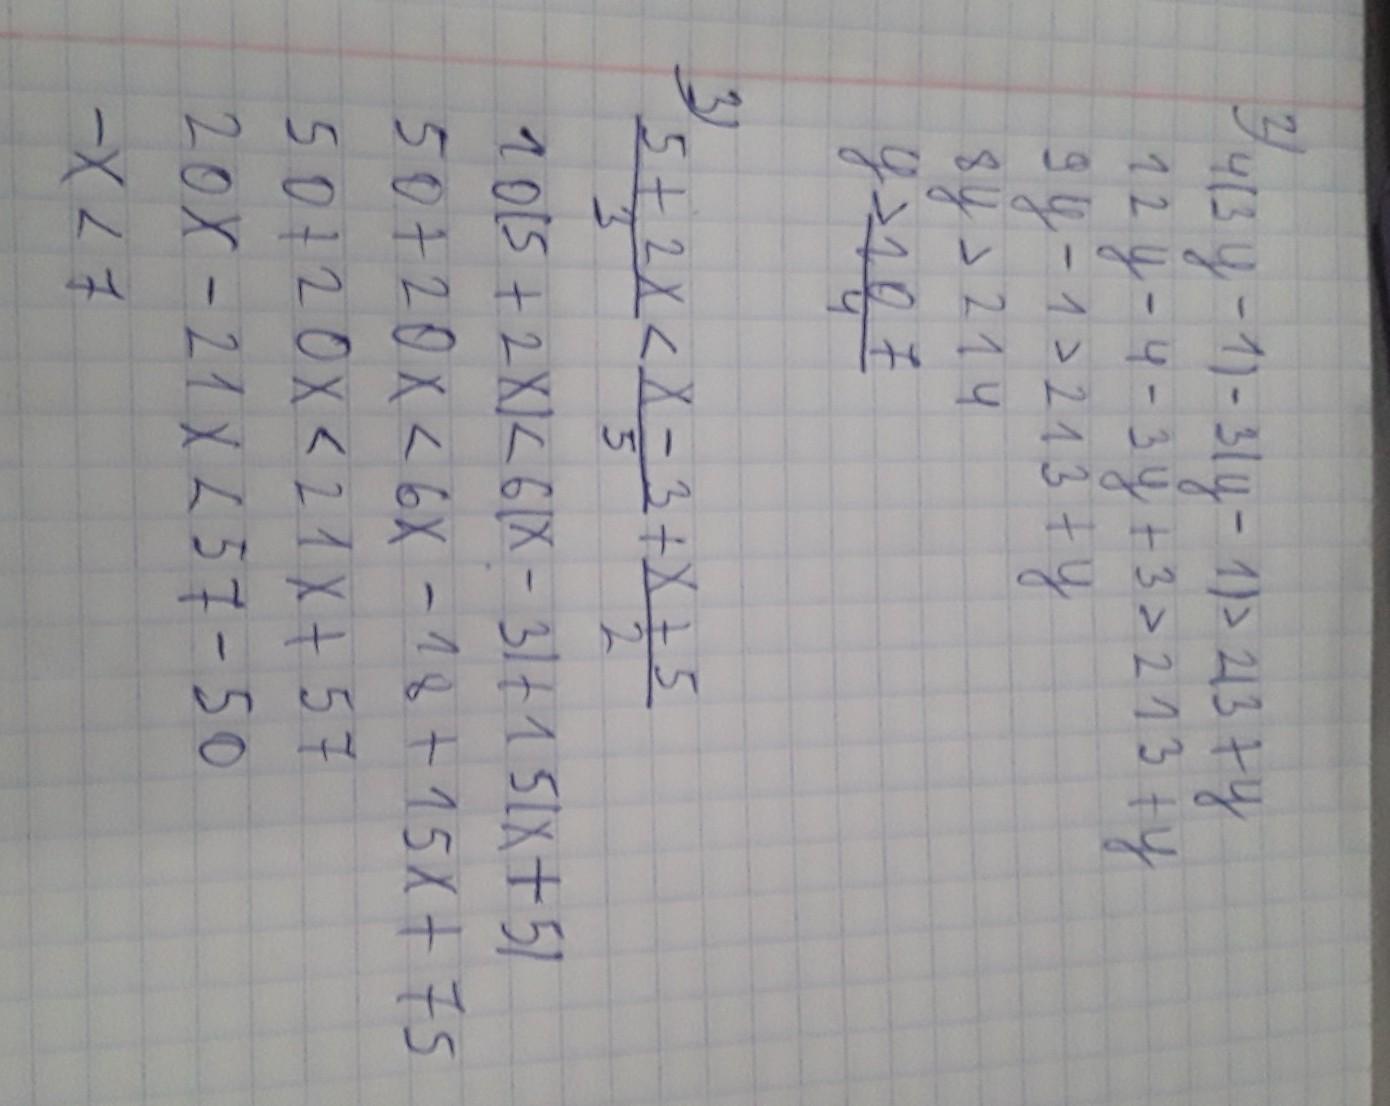 2)
4(3y-1)-3(y-1)>213+y
12y-4-3y+3>213+y
9y-1>213+y
8y>214
y>107/4
3)
5+2x/3<x-3/5+x+5/2
10(5+2x)<6(x-3)+15(x+5)
50+20x<6x-18+15x+75
50+20x<21x+57
20x-21x<57-50
-x<7